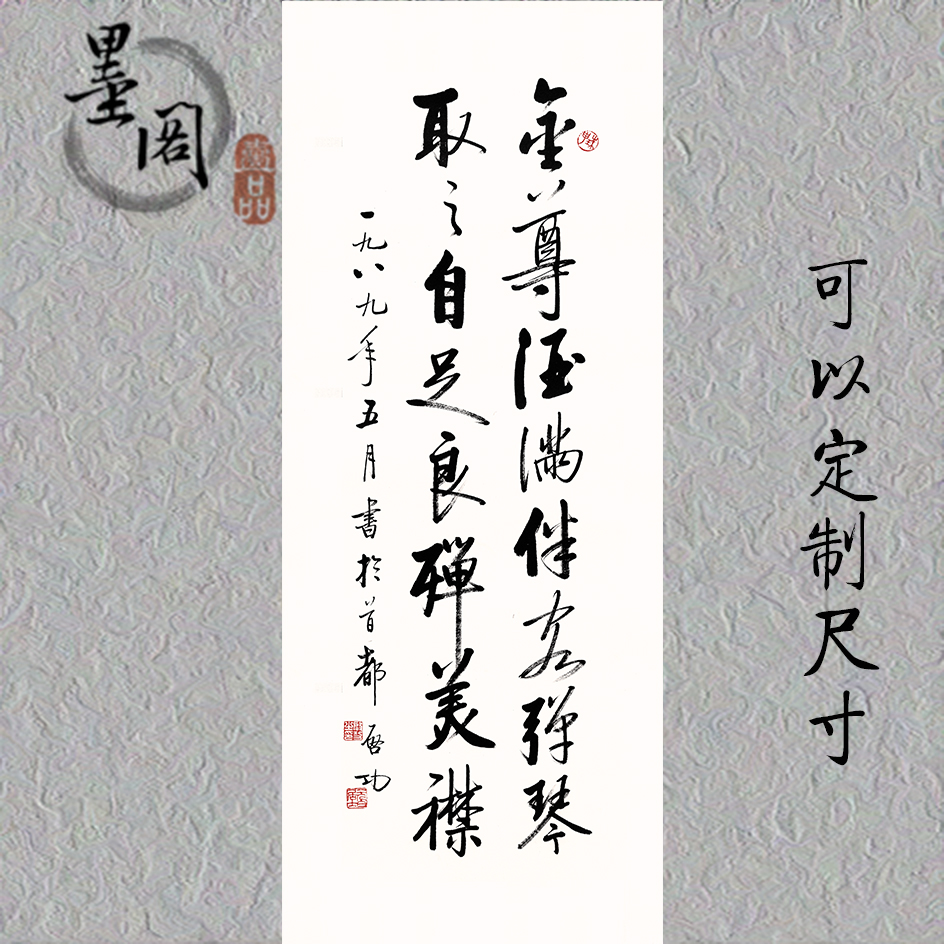 墨阁
金尊酒满伴客弹琴
取之自足良殚美襟
一九八九年五月書於首都 启功
可以定制尺寸